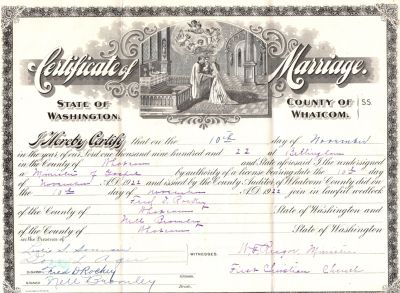 Certificate of Marriage.
STATE OF WASHINGTON. COUNTY OF WHATCOM. SS.
I Hereby Certify that on the 10th day of November
in the year of our Lord one thousand nine hundred and 22 at Bellingham
in the County of Whatcom and State aforesaid I the undersigned
a Minister of Gospel by authority of a license bearing date the 10th day
of November A.D. 1922 and issued by the County Auditor of Whatcom County did on
the 10th day of November A.D. 1922 join in lawful wedlock
Fred D. Rockey
of the County of Whatcom State of Washington and
Nell Bromley
of the County of Whatcom State of Washington
in the Presence of
WITNESSES
Minister
First Christian Church
SIGNED Fred D Rockey
SIGNED Nell Bromley
Groom.
Bride.